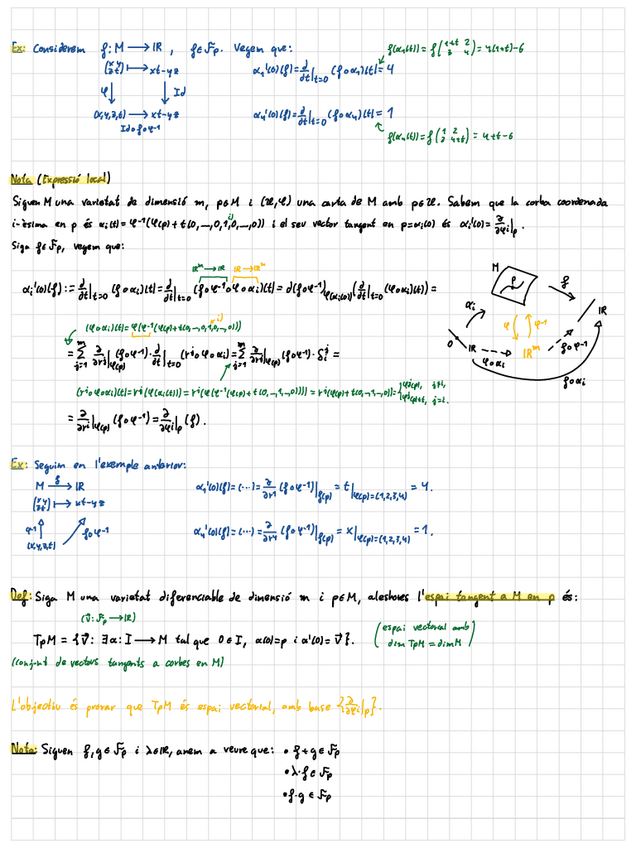 Ex: Considerem f: M → ℝ, f ∈ ℱp. Vegem que:
(x y / z t) ↦ xt-yz
φ ↓ ↓ Id
(x,y,z,t) → xt-yz
Id∘f∘φ⁻¹
α₁'(0)(f) = d/dt|t=0 (f∘α₁)(t) = 4
f(α₁(t)) = f(1+t 2 / 3 4) = 4(1+t)-6
α₄'(0)(f) = d/dt|t=0 (f∘α₄)(t) = 1
f(α₄(t)) = f(1 2 / 3 4+t) = 4+t-6
Nota (Expressió local)
Siguen M una varietat de dimensió m, p∈M i (𝒰,φ) una carta de M amb p∈𝒰. Sabem que la corba coordenada
i-èsima en p és αi(t) = φ⁻¹(φ(p)+t(0,…,0,1,0,…,0)) i el seu vector tangent en p=αi(0) és αi'(0) = ∂/∂φi|p.
Sigui f∈ℱp, vegem que:
ℝᵐ→ℝ ℝ→ℝᵐ
αi'(0)(f) := d/dt|t=0 (f∘αi)(t) = d/dt|t=0 (f∘φ⁻¹∘φ∘αi)(t) = d(f∘φ⁻¹)φ(αi(0)) (d/dt|t=0 (φ∘αi)(t)) =
(φ∘αi)(t) = φ(φ⁻¹(φ(p)+t(0,…,0,1,0,…,0)))
= Σ j=1 m ∂/∂rj|φ(p) (f∘φ⁻¹) · d/dt|t=0 (rj∘φ∘αi) = Σ j=1 m ∂/∂rj|φ(p) (f∘φ⁻¹) · δij =
(rj∘φ∘αi)(t) = rj(φ(αi(t))) = rj(φ(φ⁻¹(φ(p)+t(0,…,1,…,0)))) = rj(φ(p)+t(0,…,1,…,0)) = {φj(p), j≠i, φj(p)+t, j=i.
= ∂/∂ri|φ(p) (f∘φ⁻¹) = ∂/∂φi|p (f).
M p f ℝ
αi φ φ⁻¹
0 ℝ φ∘αi ℝᵐ f∘φ⁻¹
f∘αi
Ex: Seguim en l'exemple anterior:
M f → ℝ
(x y / z t) ↦ xt-yz
φ⁻¹ ↑ f∘φ⁻¹
(x,y,z,t)
α₁'(0)(f) = (…) = ∂/∂r1 (f∘φ⁻¹)|φ(p) = t|φ(p)=(1,2,3,4) = 4.
α₄'(0)(f) = (…) = ∂/∂r4 (f∘φ⁻¹)|φ(p) = x|φ(p)=(1,2,3,4) = 1.
Def: Siga M una varietat diferenciable de dimensió m i p∈M, aleshores l'espai tangent a M en p és:
(v̄: ℱp → ℝ)
TpM = {v̄: ∃α: I → M tal que 0∈I, α(0)=p i α'(0)=v̄}.
(espai vectorial amb dim TpM = dim M)
(conjunt de vectors tangents a corbes en M)
L'objectiu és provar que TpM és espai vectorial, amb base {∂/∂φi|p}.
Nota: Siguen f,g∈ℱp i λ∈ℝ, anem a veure que: • f+g∈ℱp
• λ·f∈ℱp
• f·g∈ℱp